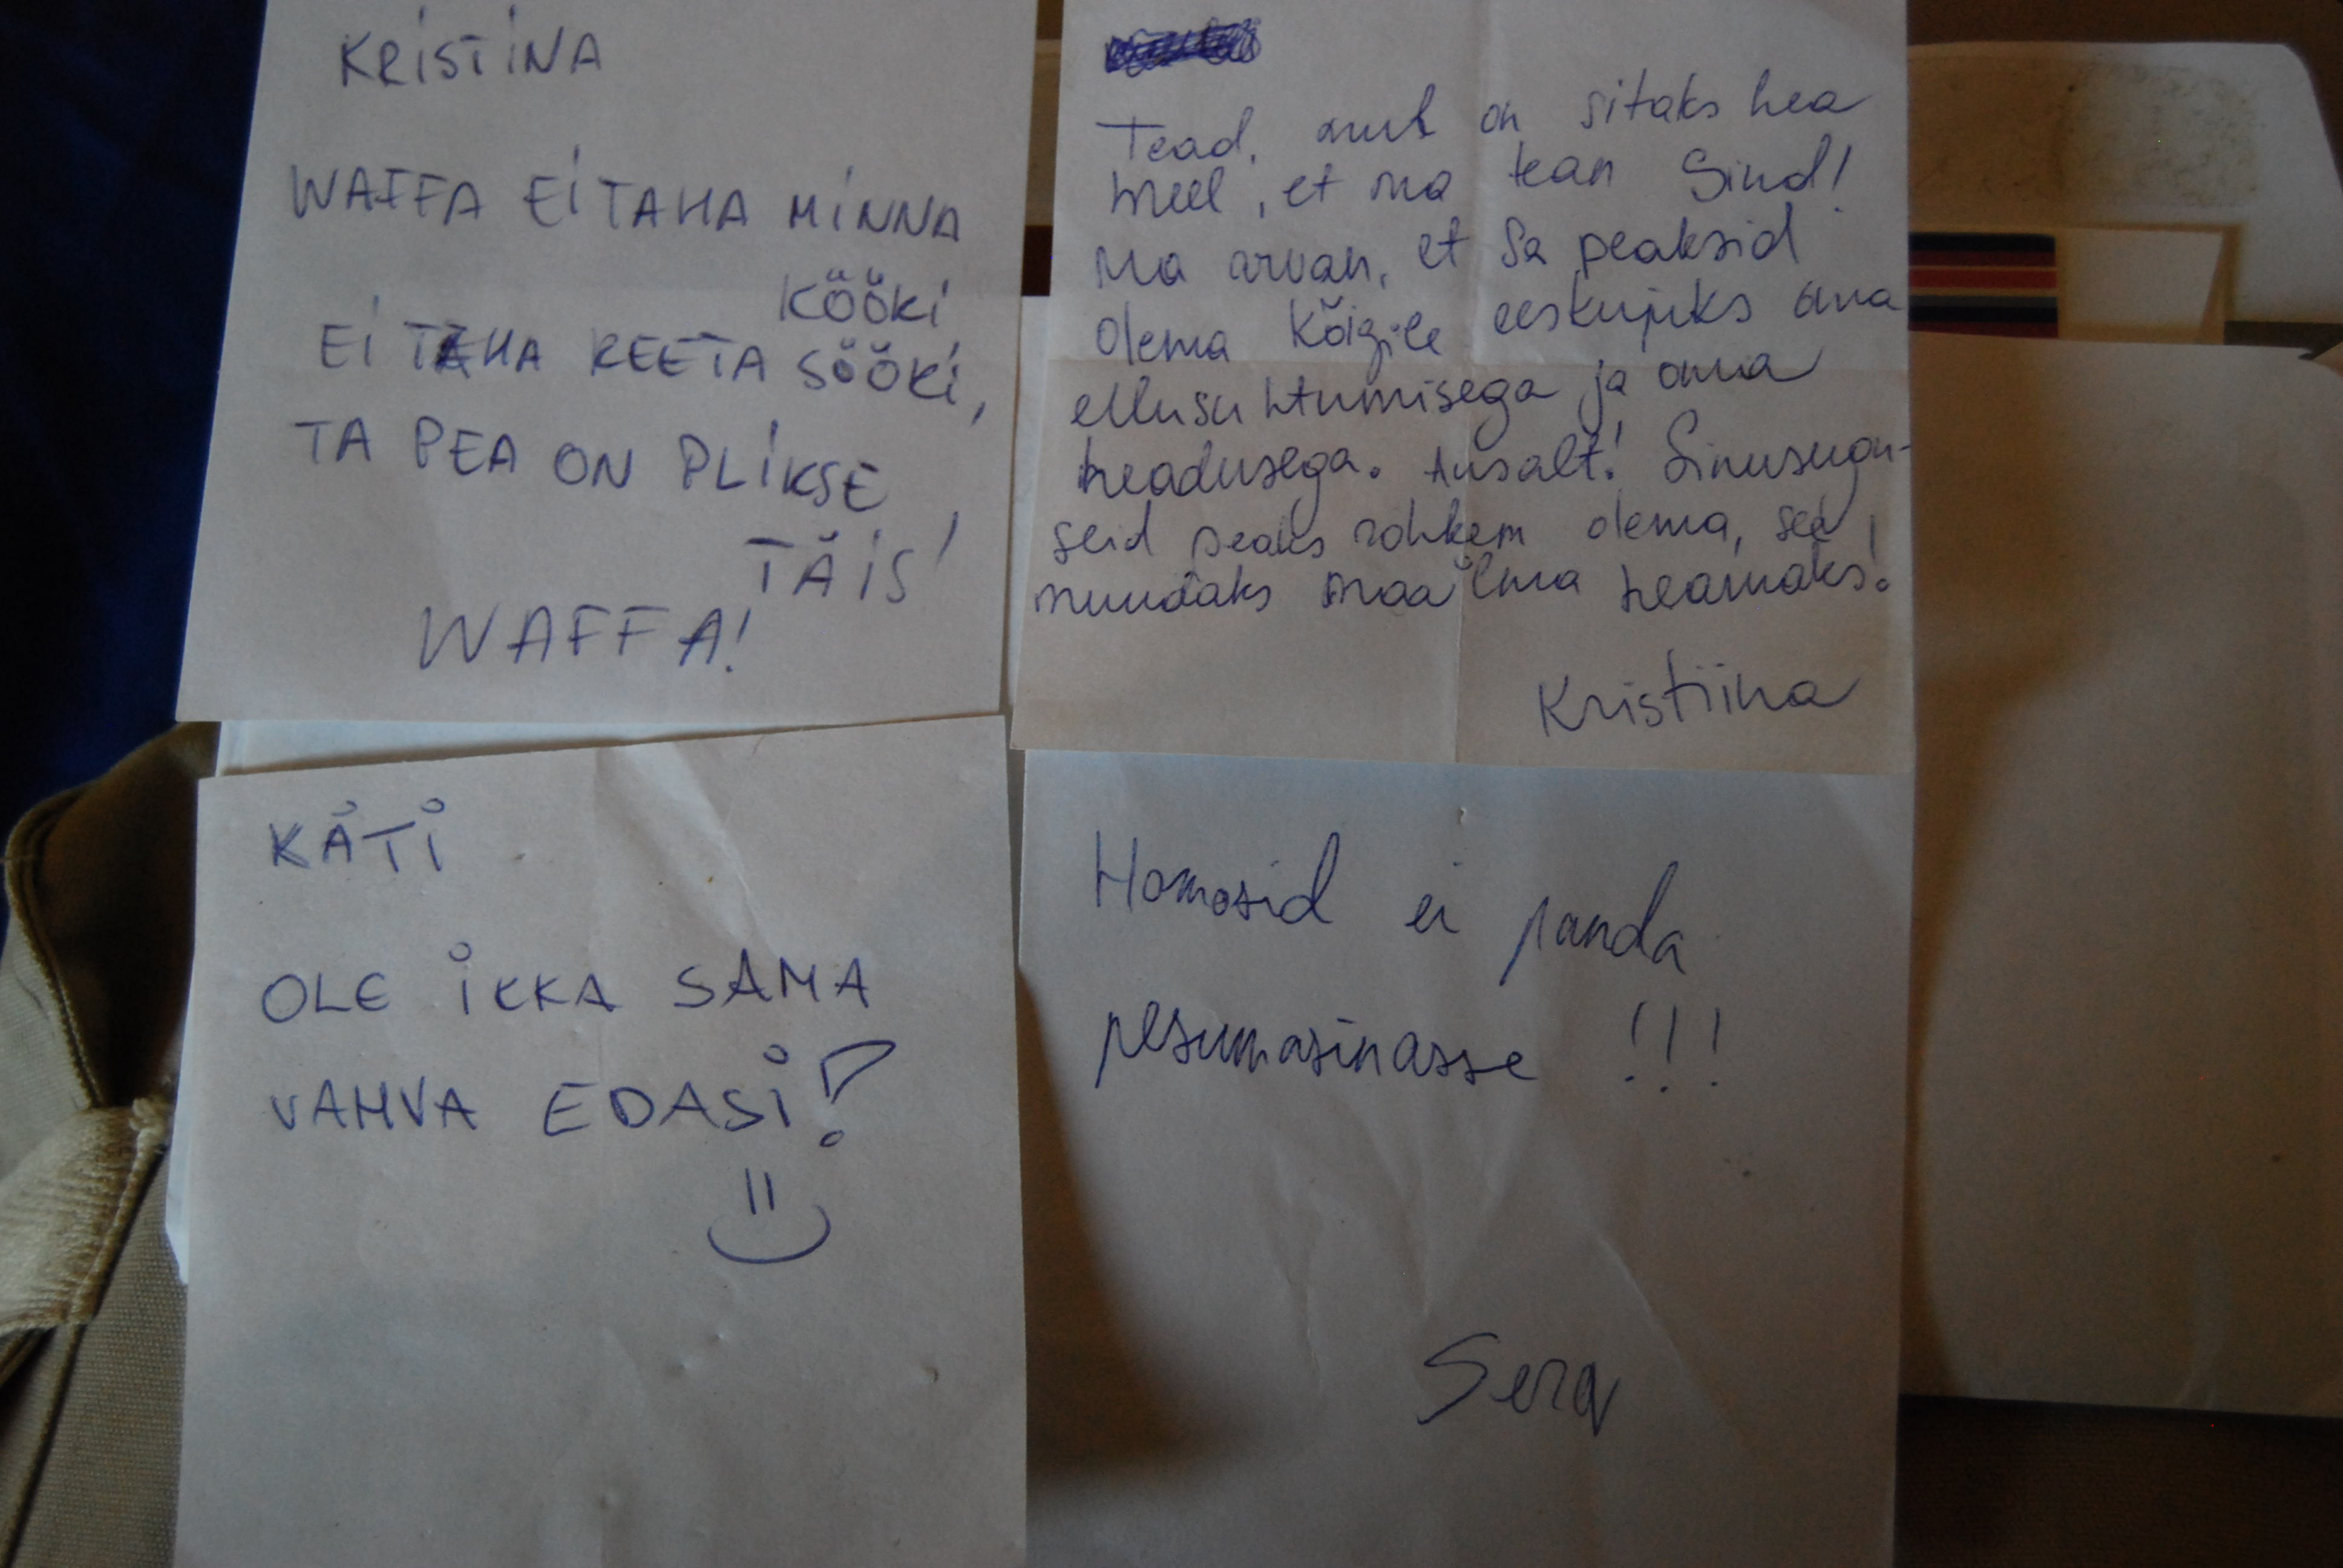 KRISTIINA
WAFFA EI TAHA MINNA
KÖÖKI,
EI TAHA KEETA SÖÖKI,
TA PEA ON PLIKSE
TÄIS!
WAFFA!
Tead, mul on sitaks hea
meel, et ma tean Sind!
Ma arvan, et Sa peaksid
olema kõigile eeskujuks oma
ellusuhtumisega ja oma
headusega. Ausalt! Sinusugu-
seid peaks rohkem olema, see
muudaks maailma heamaks!
Kristiina
KÄTI
OLE IKKA SAMA
VAHVA EDASI!
Homosid ei panda
pesumasinasse !!!
Sera